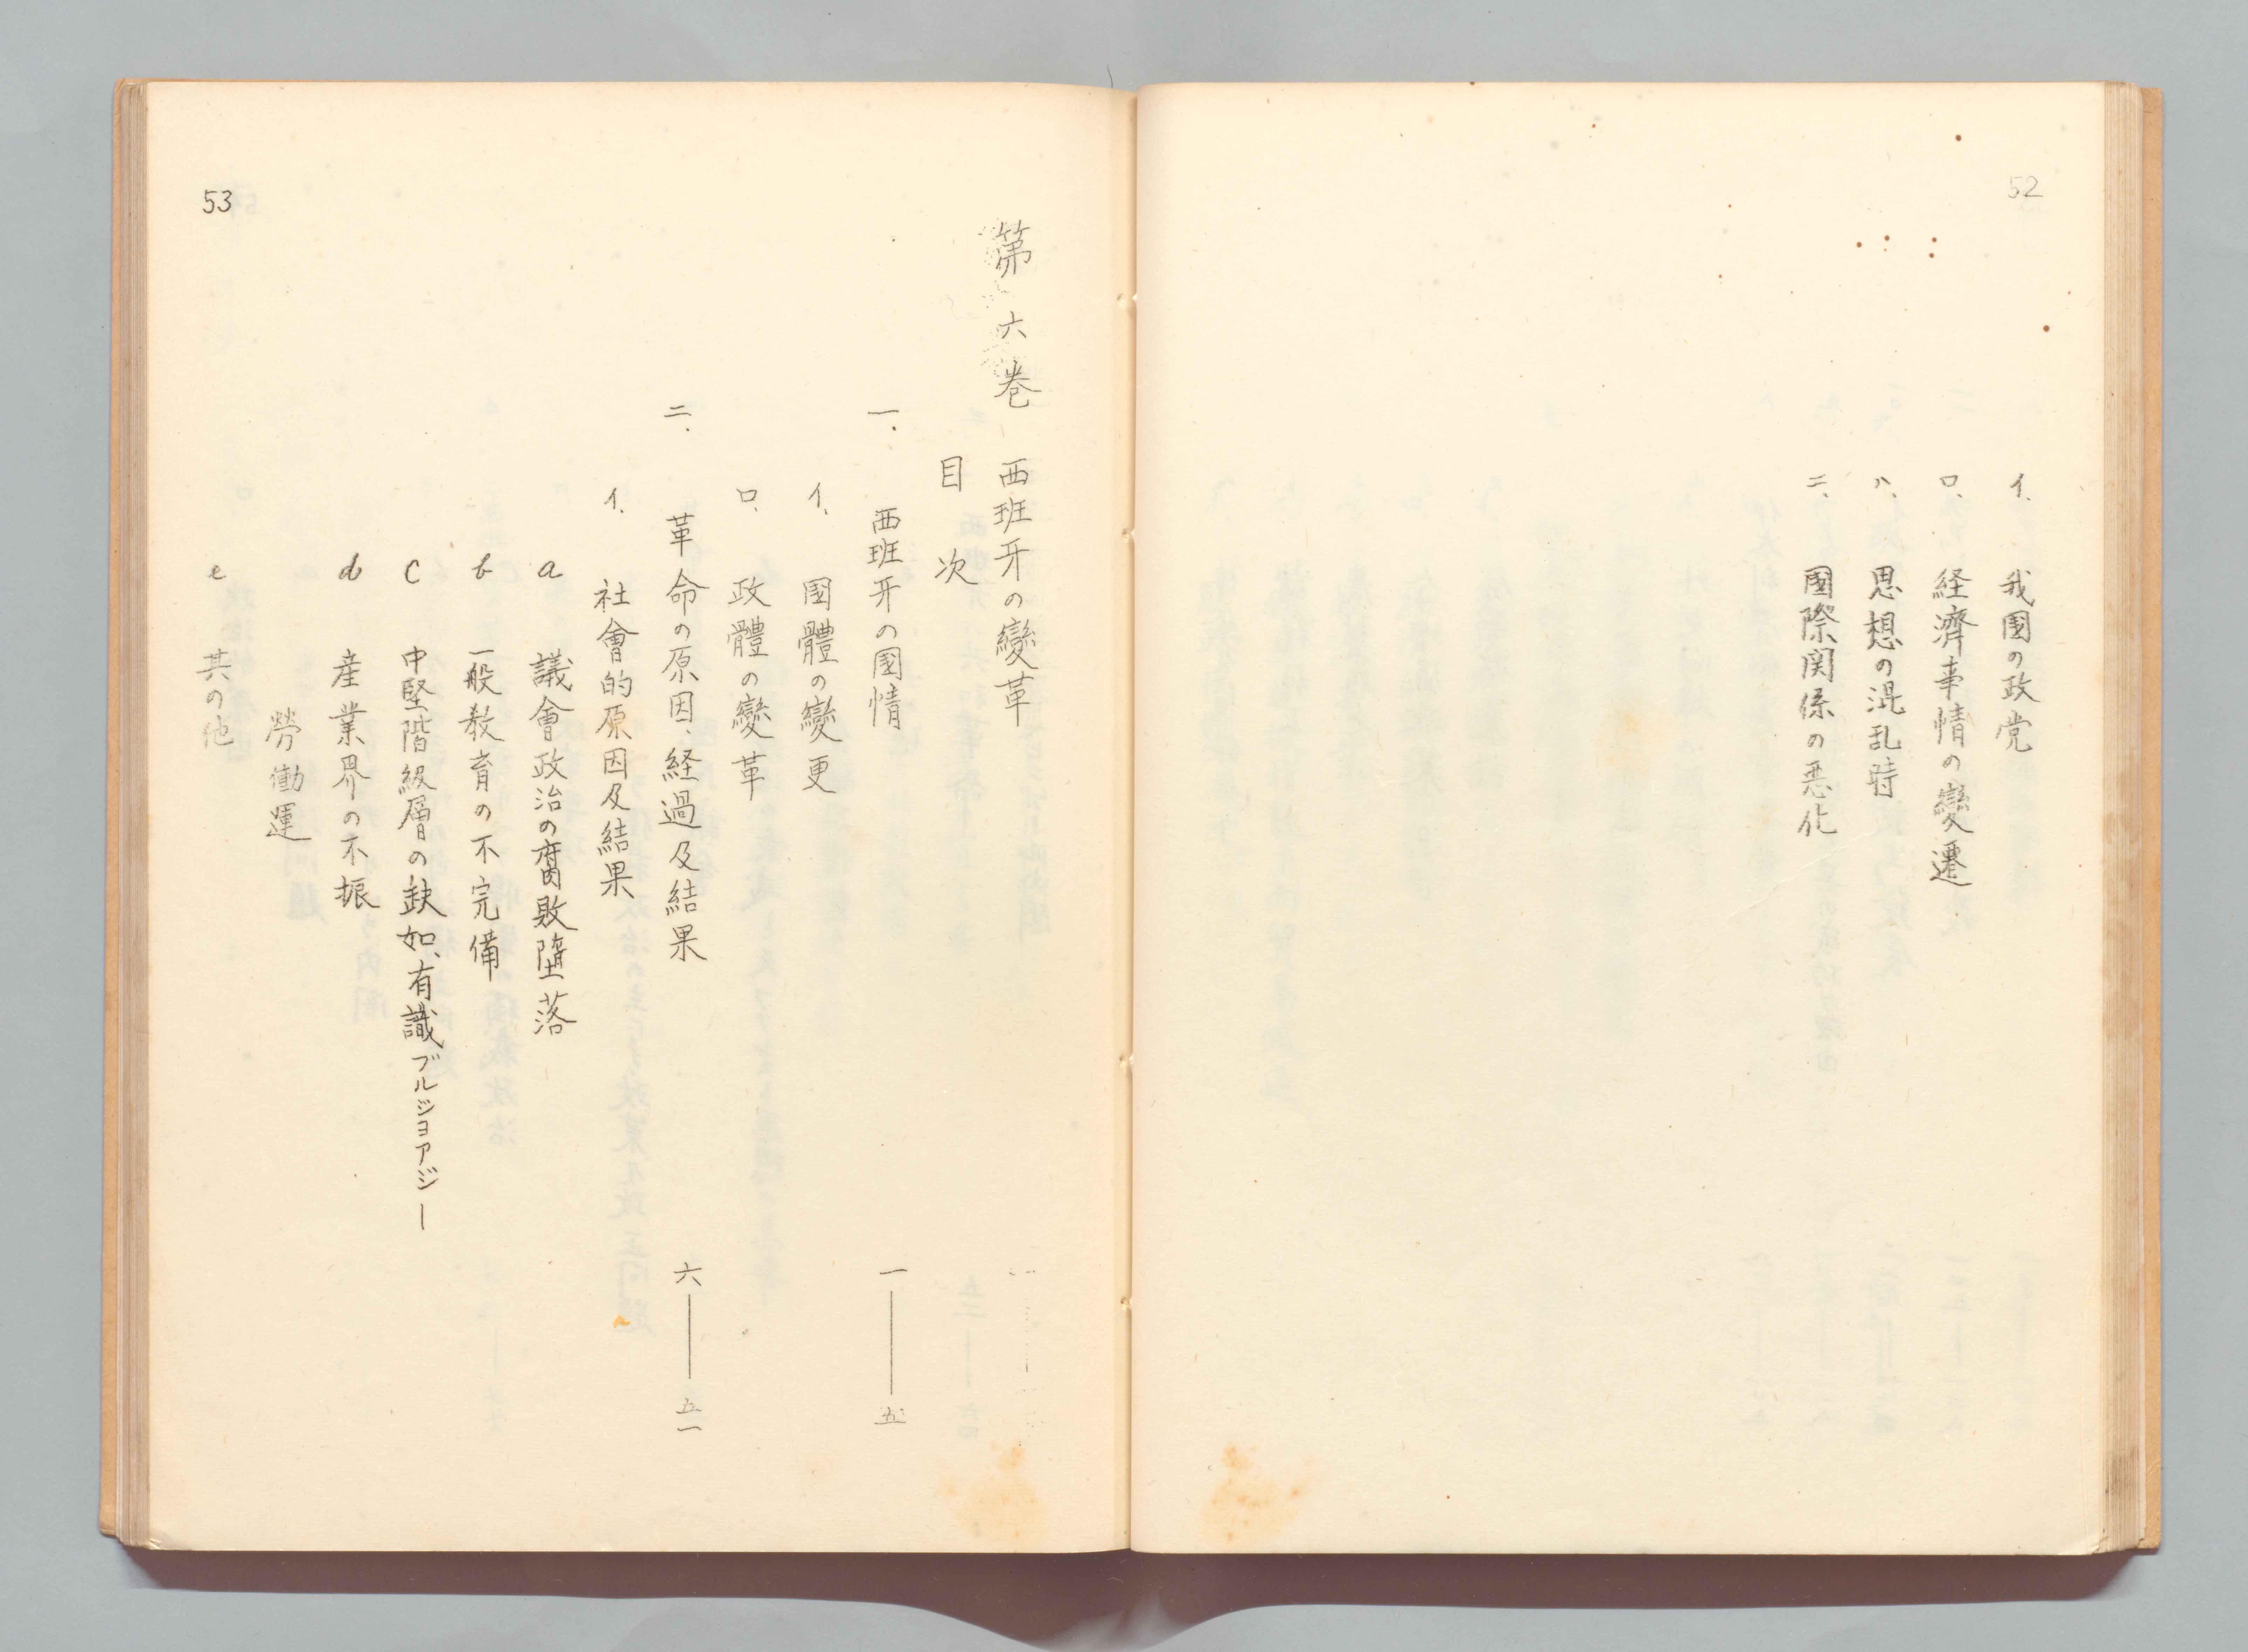 52
イ、我國の政党
ロ、経濟事情の變遷
ハ、思想の混乱時
ニ、國際関係の悪化
第六巻 西班牙の變革
目次
一、西班牙の國情 一——五
イ、國體の變更
ロ、政體の變革
二、革命の原因、経過及結果 六——五一
イ、社會的原因及結果
a 議會政治の腐敗墮落
b 一般教育の不完備
c 中堅階級層の缺如、有識ブルジョアジー
d 産業界の不振
勞働運
e 其の他
53